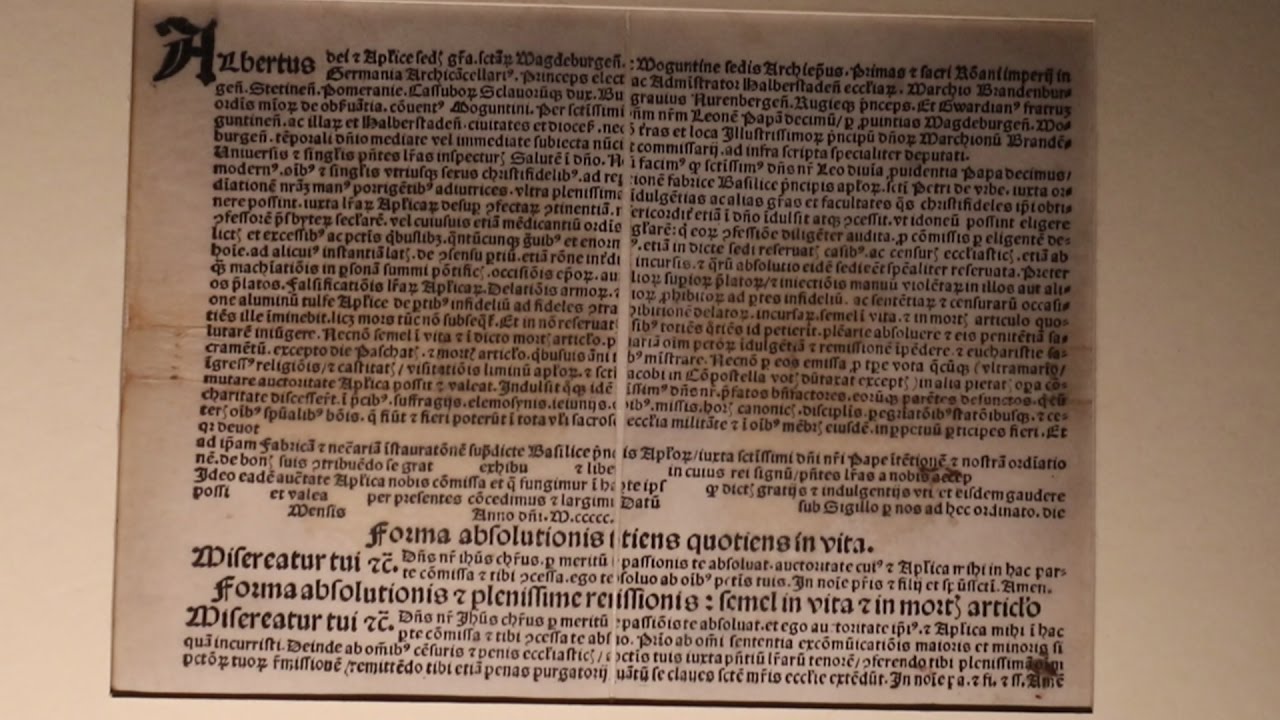 Albertus dei ⁊ Aplice sedꝫ gr̄a. sctāꝝ Magdeburgeñ. : Moguntine sedis Archiep̄us. Primas ⁊ sacri Rōani imperij in
Germania Archicācellariꝰ. Princeps elect ac Admistrator Halberstadeñ eccliaꝝ. Marchio Brandenbur
geñ. Stetineñ. Pomeranie. Cassuboꝝ Sclauorūqꝫ dux. Bu grauius Nurenbergeñ. Rugieqꝫ p̄nceps. Et Gwardianꝰ fratruꝫ
ordis mioꝝ de obs̄uātia. cōuentꝰ Moguntini. Per sctissimi n̄m nr̄m Leonē Papā decimū/ ꝑ ꝓuintias Magdeburgeñ. Mo⸗
guntineñ. ac illaꝝ et Halberstadeñ. ciuitates et dioces̄. nec t̄ras et loca Illustrissimoꝝ p̄ncipū dn̄oꝝ Marchionū Brandē⸗
burgeñ. tēporali dn̄io mediate vel immediate subiecta nūci ⁊ commissarij. ad infra scripta specialiter deputati.
Uniuersis ⁊ singlis pn̄tes lr̄as inspecturꝫ Salutē ī dn̄o. N facimꝰ ꝙ sctissimꝰ dn̄s nr̄ Leo diuia ꝓuidentia Papa decimus/
modernꝰ. oībꝰ ⁊ singlis vtriusqꝫ sexus christifidelibꝰ. ad rep ionē fabrice Basilice p̄ncipis aploꝝ. scti Petri de vrbe. iuxta or⸗
diationē nrāꝫ manꝰ porrigētibꝰ adiutrices. vltra plenissime idulgētias ac alias gr̄as et facultates q̄s christifideles ip̄i obti⸗
nere possint. iuxta lr̄aꝝ Aplicaꝝ desuꝑ ꝯfectaꝝ ꝯtinentiā. ericordit̄ etiā ī dn̄o idulsit atqꝫ ꝯcessit. vt idoneū possint eligere
ꝯfessorē p̄sbyteꝝ seclarē. vel cuiusuis etiā mēdicantiū ordis glarē: q̄ eoꝝ ꝯfessiōe diligēter audita. ꝓ cōmissis ꝑ eligentē de⸗
lictꝫ et excessibꝰ ac pctis qbuslibꝫ. qn̄tūcunqꝫ g̃uibꝰ et enorm ꝰ. etiā in dicte sedi reseruatꝫ casibꝰ. ac censurꝫ eccliasticꝫ. etiā ab
hoie. ad alicuiꝰ instantiā latꝫ. de ꝯsensu ꝑtiū. etiā rōne inter̄di incursis. ⁊ qr̄ū absolutio eidē sedi eēt sp̄ealiter reseruata. Preter
q̄ꝫ machiatiōis in ꝑsonā summi pōtificꝫ. occisiōis ep̄oꝝ. au lioꝝ supioꝝ p̄latoꝝ/⁊ iniectiōis manuū violētaꝝ in illos aut ali⸗
os p̄latos. Falsificatiōis lr̄aꝝ Aplicaꝝ. Delatiōis armoꝝ. ⁊ ioꝝ ꝓhibitoꝝ ad ꝑtes infideliū. ac sentētiaꝝ ⁊ censuraꝝ occasi⸗
one aluminū tulfe Aplice de ꝑtibꝰ infideliū ad fideles ꝯtra hibitionē delatoꝝ. incursaꝝ. semel ī vita. ⁊ in mortꝫ articulo quo⸗
tiēs ille iminebit. licꝫ mors tūc nō subseqt̄. Et in nō reseruat sibꝰ totiēs q̄tiēs id petierit. plēarie absoluere ⁊ eis penitētiā sa⸗
lutarē iniūgere. Necnō semel ī vita ⁊ ī dicto mortꝫ articlo. ꝑ iariā oim pctoꝝ idulgētiā ⁊ remissionē ipēdere. ⁊ eucharistie sa⸗
cramētū. excepto die Paschatꝫ. ⁊ mortꝫ articlo. qbusuis āni t bꝰ mistrare. Necnō ꝑ eos emissa ꝓ tꝑe vota q̄cūqꝫ (vltramario/
īgressꝰ religiōis/⁊ castitatꝫ/ visitatiōis liminū aploꝝ. ⁊ scti acobi in Cōpostella votꝫ dūtaxat exceptꝫ) in alia pietatꝫ opa cō⸗
mutare auctoritate Aplica possit ⁊ valeat. Indulsit q̄qꝫ idē issimꝰ dn̄s nr̄. p̄fatos bn̄factores. eorūqꝫ parētes defunctos. q̄ cū
charitate discesser̄t. ī p̄cibꝰ. suffragijs. elemosynis. ieiunijs. o tibꝰ. missis. horꝫ canonicꝫ. disciplis. peg̃riatōibꝰ statōibusqꝫ. ⁊ ce⸗
terꝫ oībꝰ sp̄ualibꝰ bōis. q̄ fiūt ⁊ fieri poterūt ī tota vl̄i sacros ecclia militātē ⁊ ī oībꝰ mēbrꝫ eiusdē. in ꝑpetuū ꝑticipes fieri. Et
qꝛ deuot
ad ip̄am Fabricā ⁊ necāria īstauratōnē sup̄dicte Basilice p̄nc is Aploꝝ/ iuxta sctissimi dn̄i nr̄i Pape ītētiōnē ⁊ nostrā ordiatio
nē. de bonꝫ suis ꝯtribuēdo se grat exhibu ⁊ libe in cuius rei signū/ pn̄tes lr̄as a nobis accep
Ideo eadē auctate Aplica nobis cōmissa et q̄ fungimur ī ha te ips ꝙ dictꝫ gratijs ⁊ indulgentijs vti et eisdem gaudere
possi et valea per presentes cōcedimus ⁊ largimu Datū sub Sigillo ꝑ nos ad hec ordinato. die
Mensis Anno dn̄i. M.ccccc.
Forma absolutionis tiens quotiens in vita.
Misereatur tui ⁊c̄. Dn̄s nr̄ ihūs chr̄us. ꝑ meritū passionis te absoluat. auctoritate cuiꝰ ⁊ Aplica mihi in hac par⸗
te cōmissa ⁊ tibi ꝯcessa. ego te soluo ab oībꝰ pctis tuis. In noīe pr̄is ⁊ filij et sp̄ūssctī. Amen.
Forma absolutionis ⁊ plenissime re issionis: semel in vita ⁊ in mortꝫ articlo
Misereatur tui ⁊c̄. Dn̄s nr̄ Jhūs chr̄us ꝑ meritū passiōis te absoluat. et ego auctoritate ip̄iꝰ. ⁊ Aplica mihi ī hac
ꝑte cōmissa ⁊ tibi ꝯcessa te abs io. Prio ab om̄i sententia excōmūicatiōis maioris et minoris si
quā incurristi. Deinde ab om̄ibꝰ cēsuris ⁊ penis eccliasticꝫ/ pctis tuis iuxta pn̄tiū lr̄arū tenorē/ ꝯferendo tibi plenissimā
pctōꝝ tuoꝝ r̄missionē/ remittēdo tibi etiā penas purgatorij uātū se claues sctē mr̄is ecclie extēdūt. In noīe ꝑ a. ⁊ fi. ⁊ ss. Amē